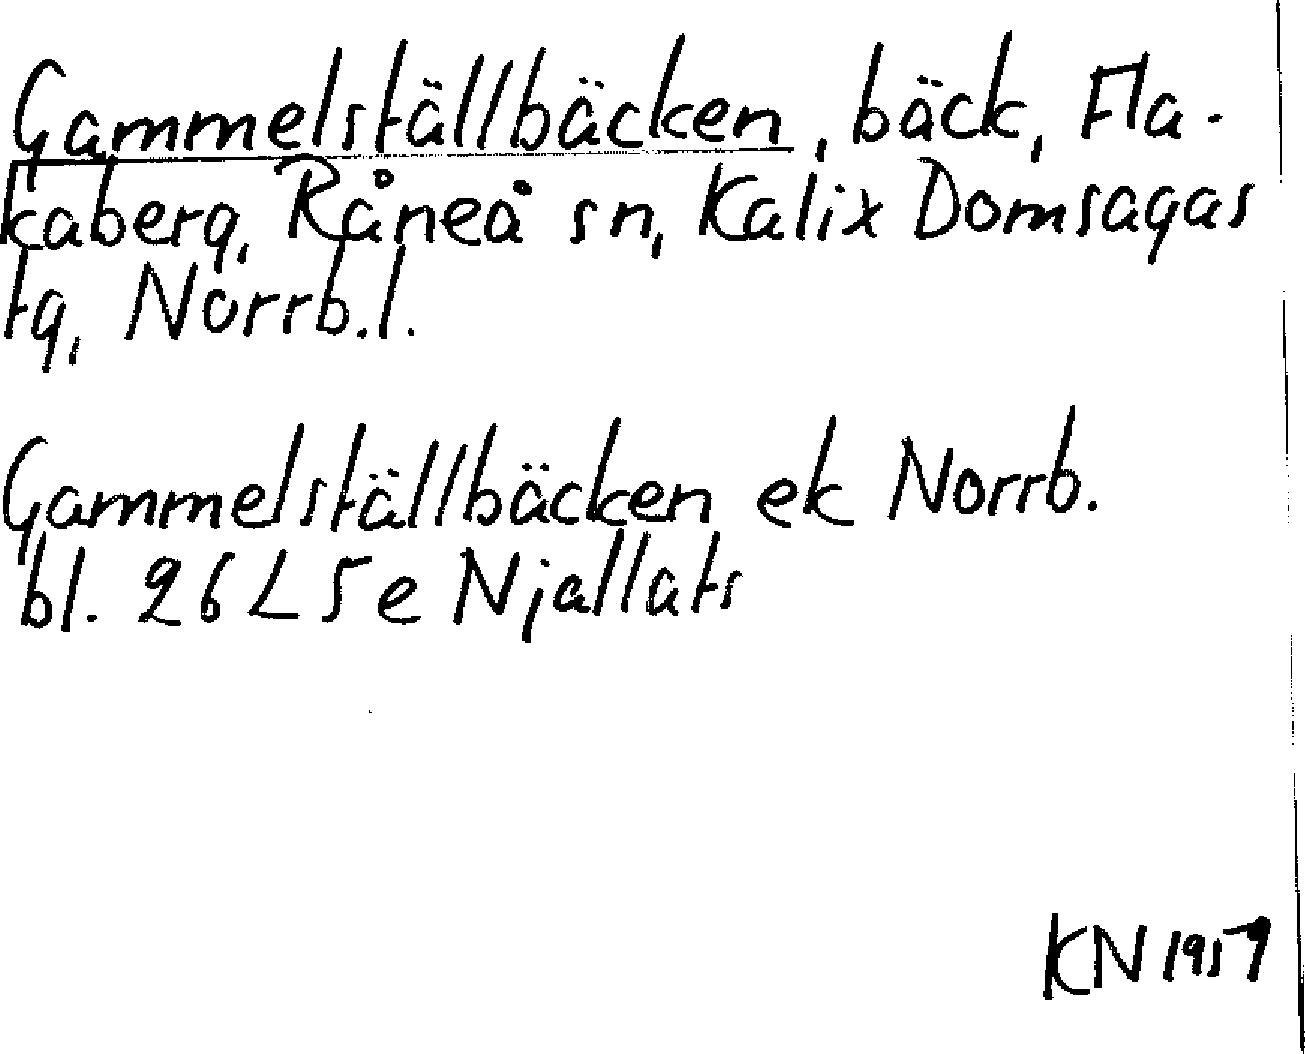 Gammelställbäcken, bäck, Fla-
kaberg, Råneå sn, Kalix Domsagas
tg, Norrb.l.
Gammelställbäcken ek Norrb.
bl. 26 L 5 e Njallats
KN 1957